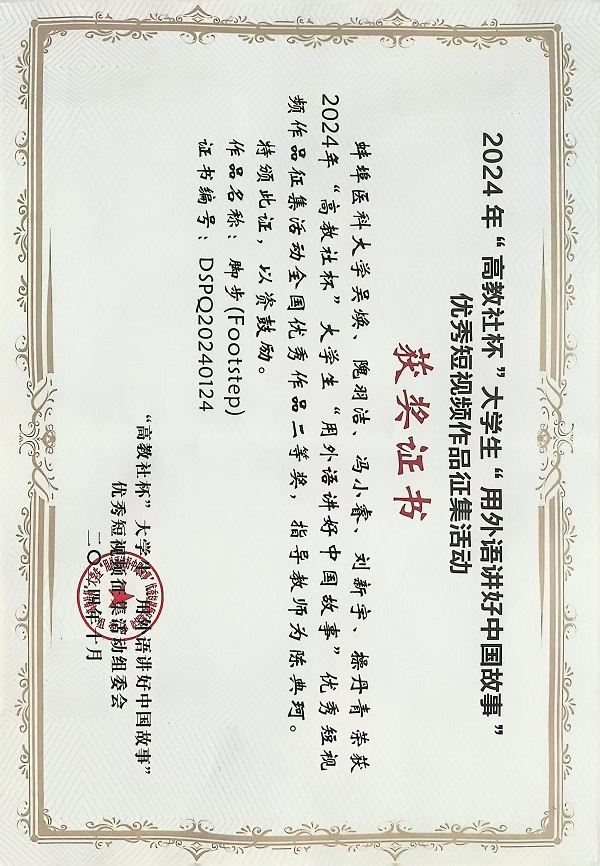 2024 年“高教社杯”大学生“用外语讲好中国故事”
优秀短视频作品征集活动
获奖证书
蚌埠医科大学吴焕、隗羽洁、冯小睿、刘新宇、操丹青荣获
2024年“高教社杯”大学生“用外语讲好中国故事”优秀短视
频作品征集活动全国优秀作品二等奖，指导教师为陈典珂。
特颁此证，以资鼓励。
作品名称：脚步(Footstep)
证书编号：DSPQ20240124
“高教社杯”大学生“用外语讲好中国故事”
优秀短视频征集活动组委会
二〇二四年十月